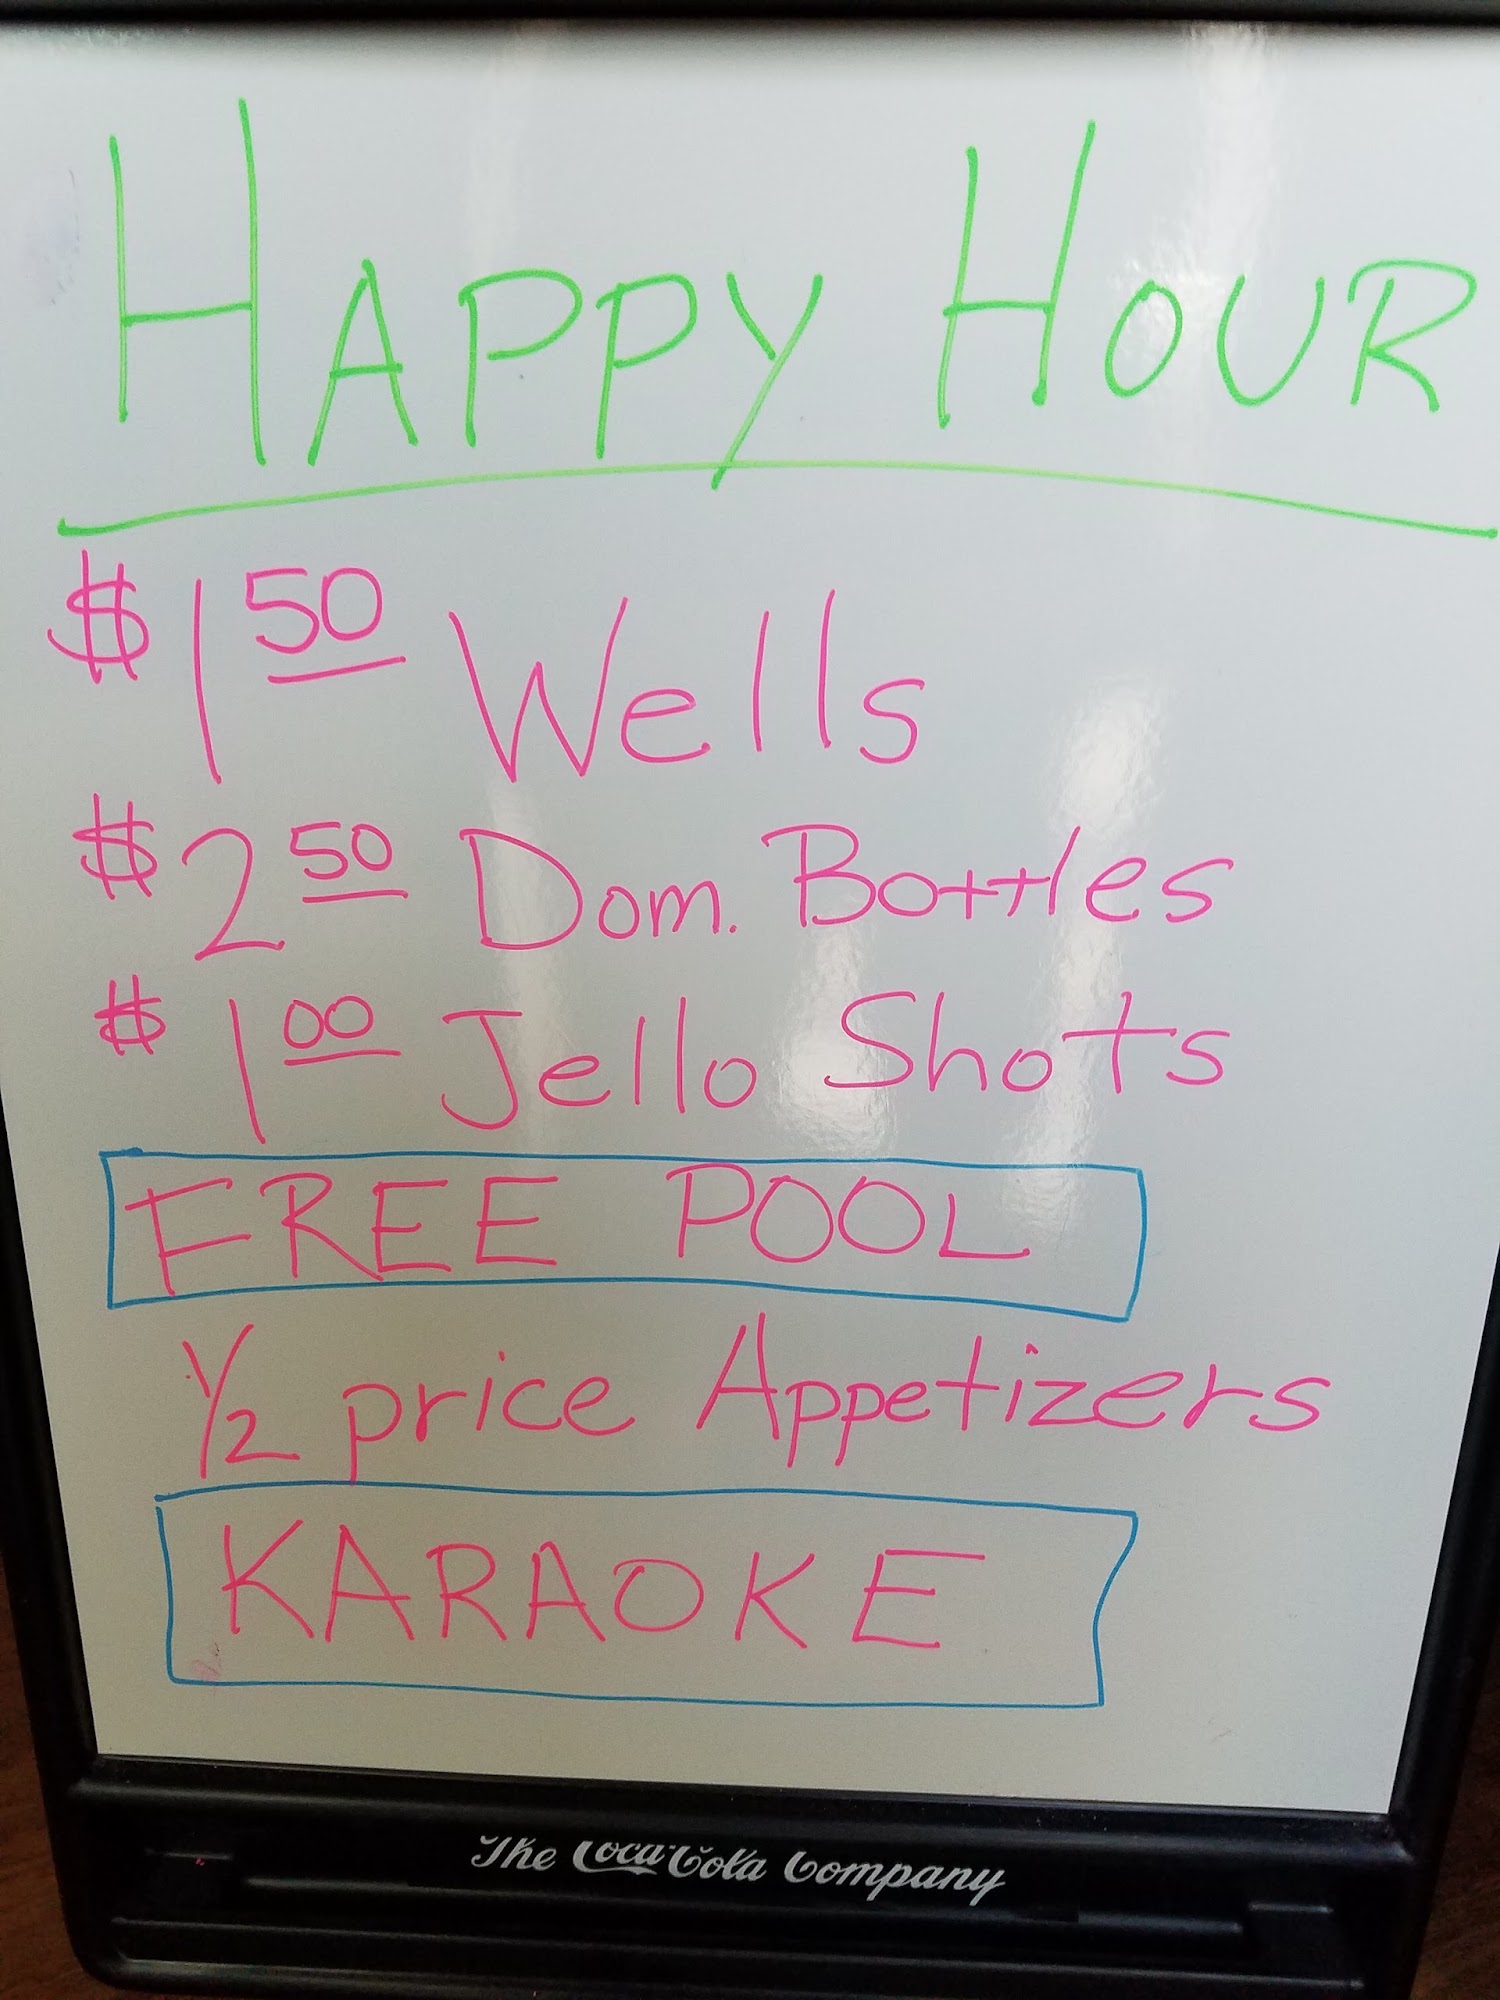 HAPPY HOUR
$1 50 Wells
$2 50 Dom. Bottles
$1 00 Jello Shots
FREE POOL
1/2 price Appetizers
KARAOKE
The Coca-Cola Company